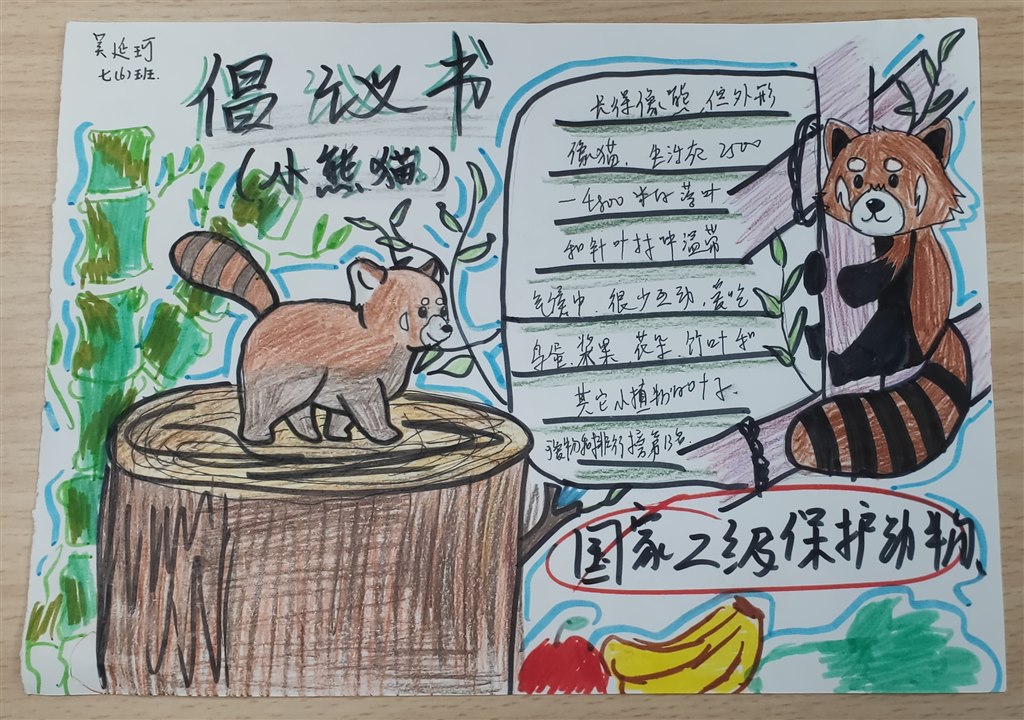 吴延珂
七(6)班.
倡议书
(小熊猫)
长得像熊,但外形
像猫,生活在2500
-4800米好落叶
和针叶林中温带
气候中,很少互动,爱吃
鸟蛋,浆果,花朵,竹叶和
其它小植物的叶子.
宠物和排行榜第13名.
国家二级保护动物、